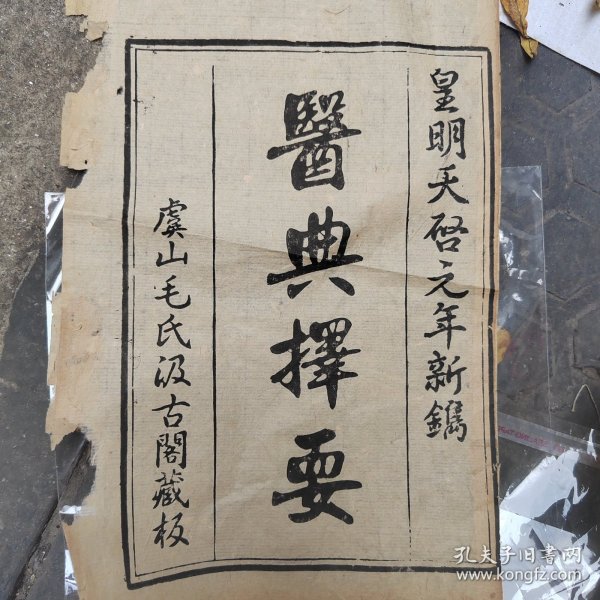 皇明天啓元年新鐫
醫典擇要
虞山毛氏汲古閣藏板
孔夫子旧書网
www.kongfz.com